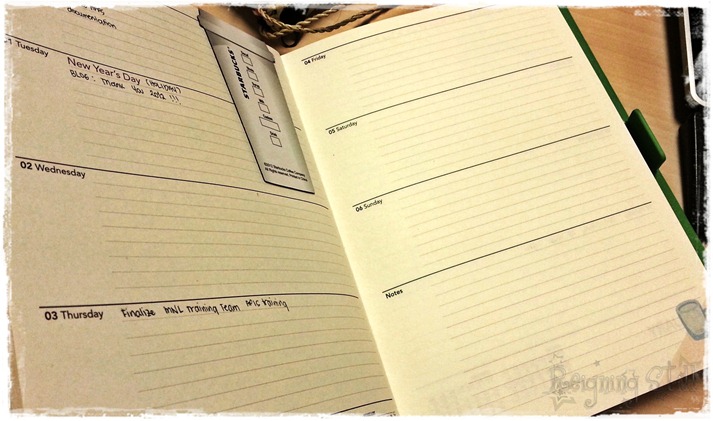 documentation
1 Tuesday
New Year's Day (HOLIDAY)
BLOG: Thank You 2012 !!!
02 Wednesday
03 Thursday Finalize MNL Training Team training
STARBUCKS
04 Friday
05 Saturday
06 Sunday
Notes
Designing